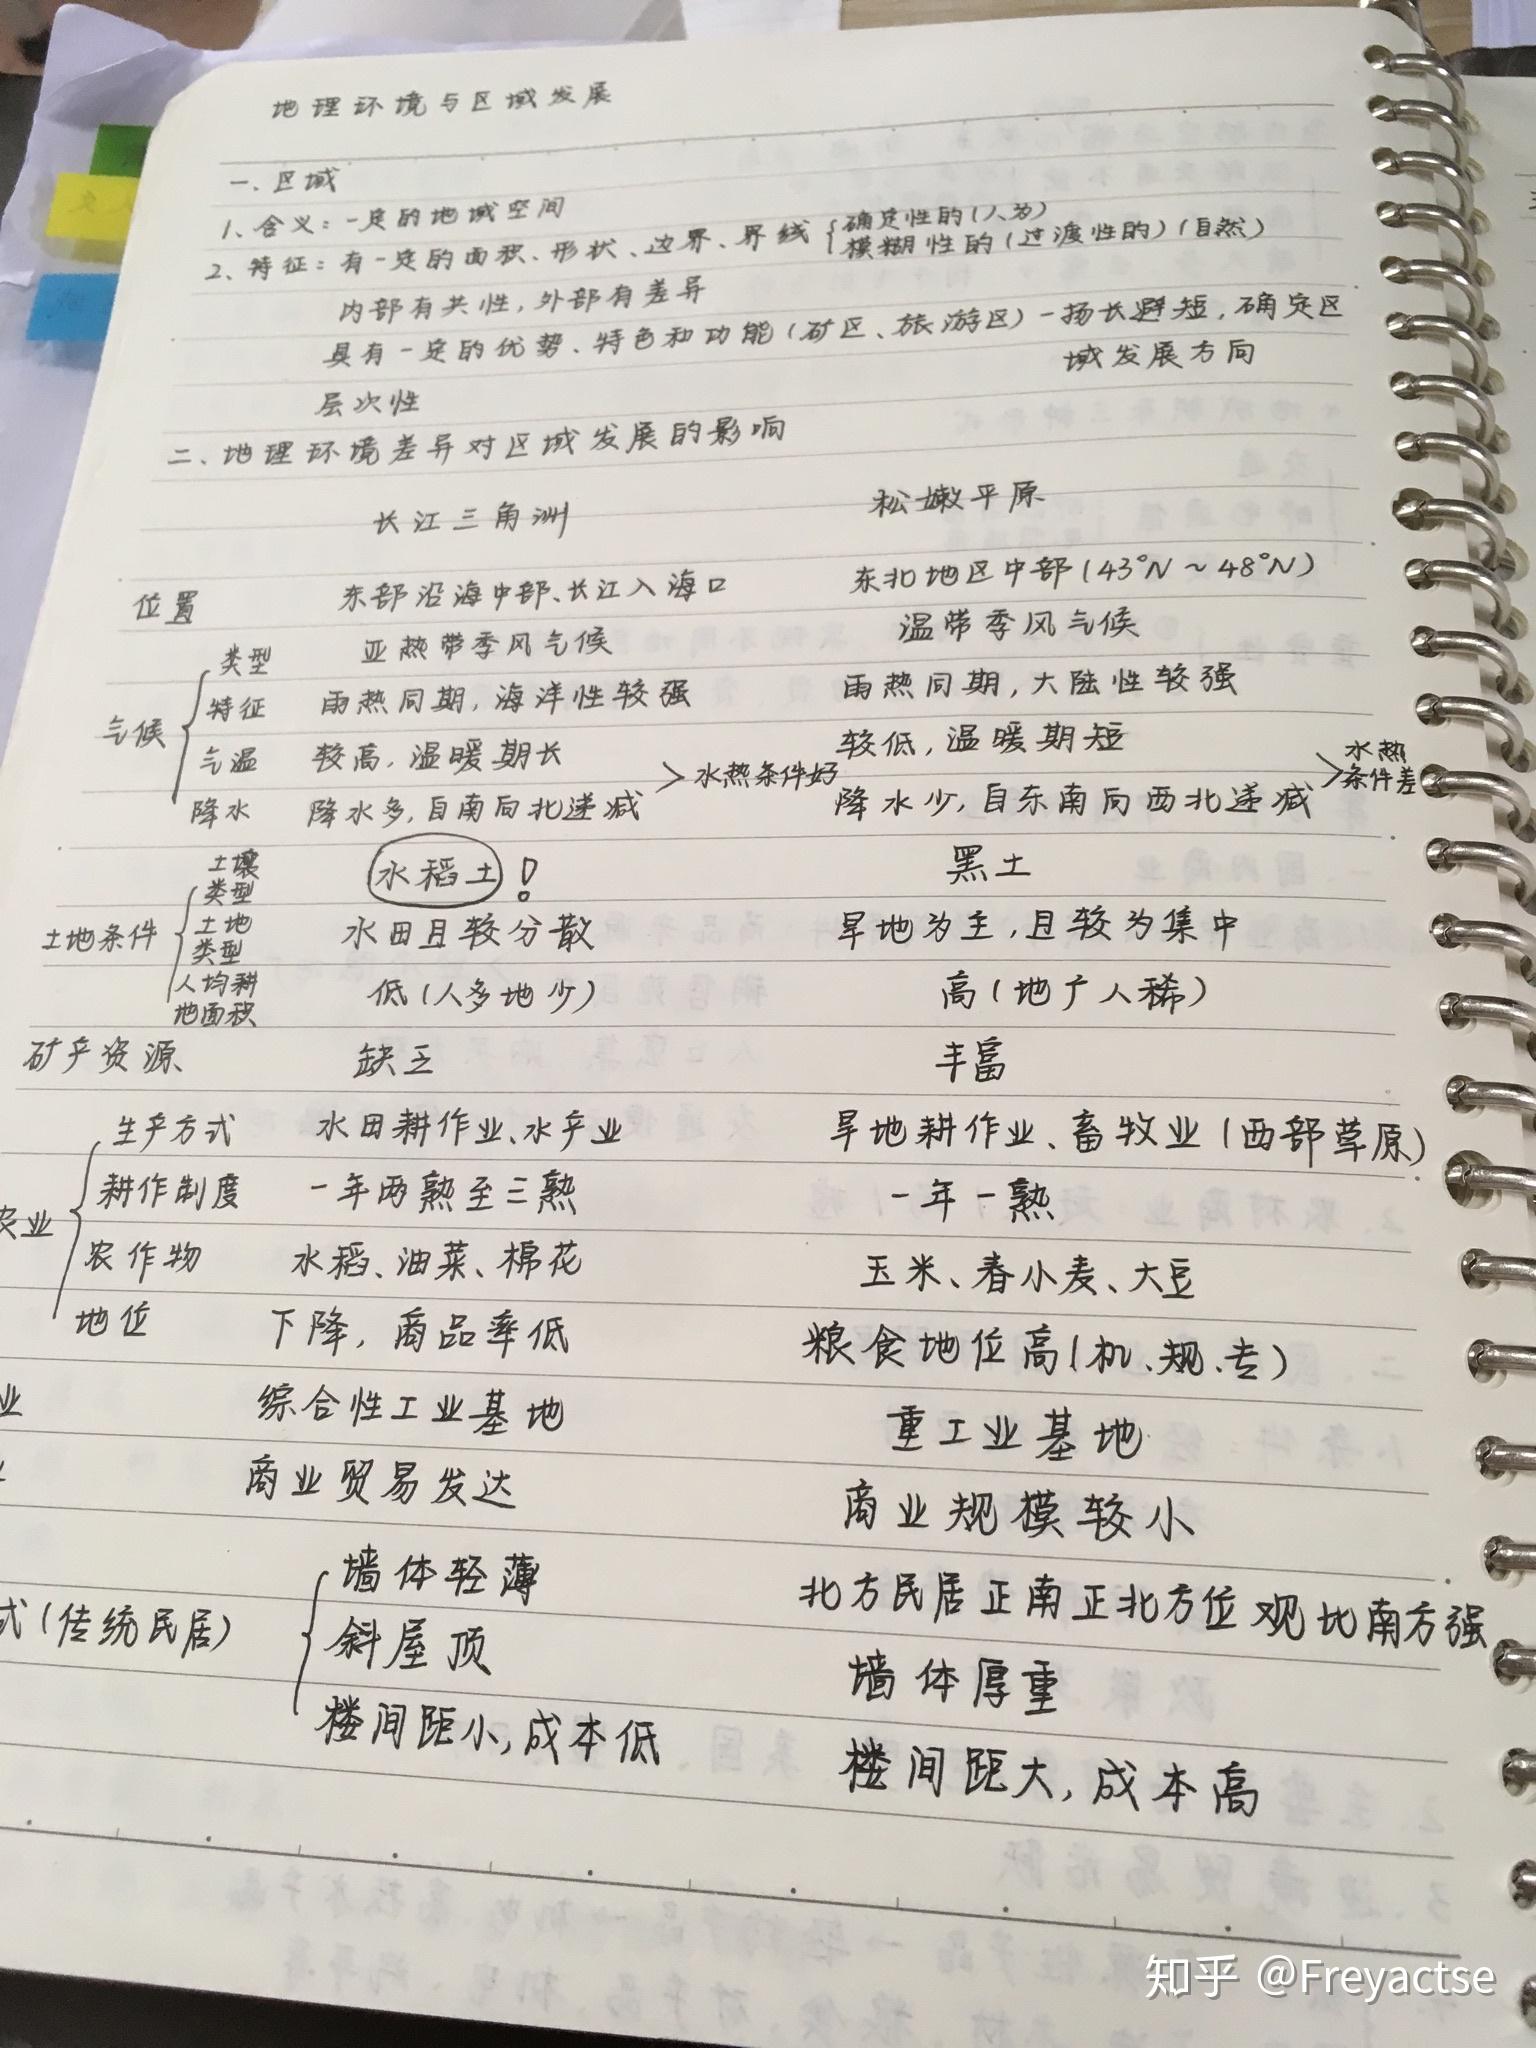 地理环境与区域发展
一、区域
1、含义：一定的地域空间
2、特征：有一定的面积、形状、边界、界线{确定性的(人为)
模糊性的(过渡性的)(自然)
内部有共性,外部有差异
具有一定的优势、特色和功能(矿区、旅游区)-扬长避短,确定区
域发展方向
层次性
二、地理环境差异对区域发展的影响
长江三角洲 松嫩平原
位置 东部沿海中部、长江入海口 东北地区中部(43°N~48°N)
类型 亚热带季风气候 温带季风气候
气候 特征 雨热同期,海洋性较强 雨热同期,大陆性较强
气温 较高,温暖期长 较低,温暖期短
>水热条件好 >水热条件差
降水 降水多,自南向北递减 降水少,自东南向西北递减
土壤类型 水稻土! 黑土
土地条件 土地类型 水田且较分散 旱地为主,且较为集中
人均耕地面积 低(人多地少) 高(地广人稀)
矿产资源 缺乏 丰富
生产方式 水田耕作业、水产业 旱地耕作业、畜牧业(西部草原)
耕作制度 一年两熟至三熟 一年一熟
农业
农作物 水稻、油菜、棉花 玉米、春小麦、大豆
地位 下降,商品率低 粮食地位高(机、规、专)
业 综合性工业基地 重工业基地
商业贸易发达 商业规模较小
墙体轻薄 北方民居正南正北方位观比南方强
式(传统民居) 斜屋顶 墙体厚重
楼间距小,成本低 楼间距大,成本高
知乎 @Freyactse